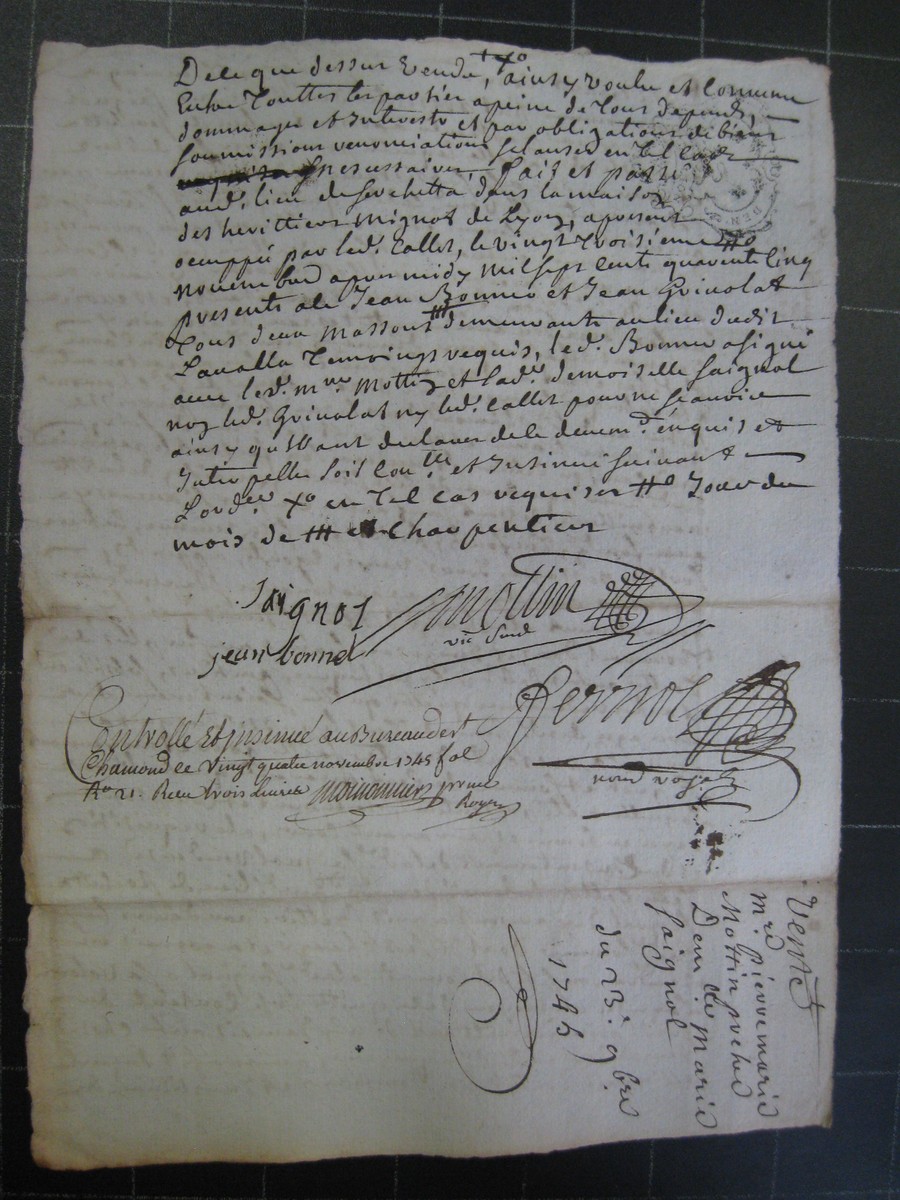 De ce que dessus vendu, + xo ainsy voulu et convenu
Entre Touttes les parties a peine de Tous depends,
dommages et Interests et par obligations de biens
soumissions renonciations & clauses en tel cas
necessaires, fait et passé
aud. lieu de dans la maison
des herittiers Mignot de Lyon, a present
occuppée par led. Callet, le vingt troisieme #o
novembre apres midy mil sept cents quarente cinq
presents a ce Jean Bonner et Jean Grivolat
Tous deux massons # demeurants au lieu dudit
Lavalla Temoings requis, led. Bonner a signé
avec led. mre Mottin et lad. demoiselle Saignol
non led. Grivolat ny led. Callet pour ne scavoir
ainsy qu'ils ont declaré de ce deuem.t enquis et
Interpellés soit con.llé et Insinué suivant
L'ord.ce Xo en tel cas requises #o Jour du
mois de # et Charpentier
Saignol
mottin
vic
jean bonné
Pernot
no.re royal
Controllé Et insinué au Bureau de St
Chamond ce vingt quatre novembre 1745 fol
Ro 21. Receu trois Livres
Royer
Vente
mre pierre marie
Mottin ptre
Dem.lle marie
Saignol
du 23.e 9bre
1745